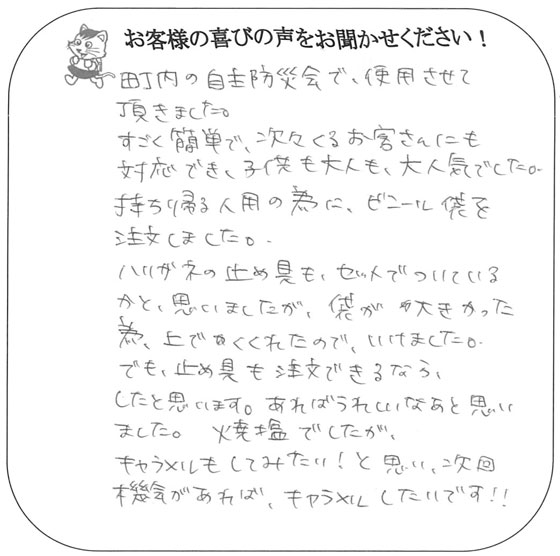 お客様の喜びの声をお聞かせください！
町内の自主防災会で、使用させて
頂きました。
すごく簡単で、次々くるお客さんにも
対応でき、子供も大人も、大人気でした。
持ち帰る人用の為に、ビニール袋を
注文しました。
ハリガネの止め具も、セットでついている
かと、思いましたが、袋が大きかった
為、上でくくれたので、いけました。
でも、止め具も注文できるなら、
したと思います。あればうれしいなあと思い
ました。 焼塩でしたが、
キャラメルもしてみたい！と思い、次回
機気があれば、キャラメルしたいです!!